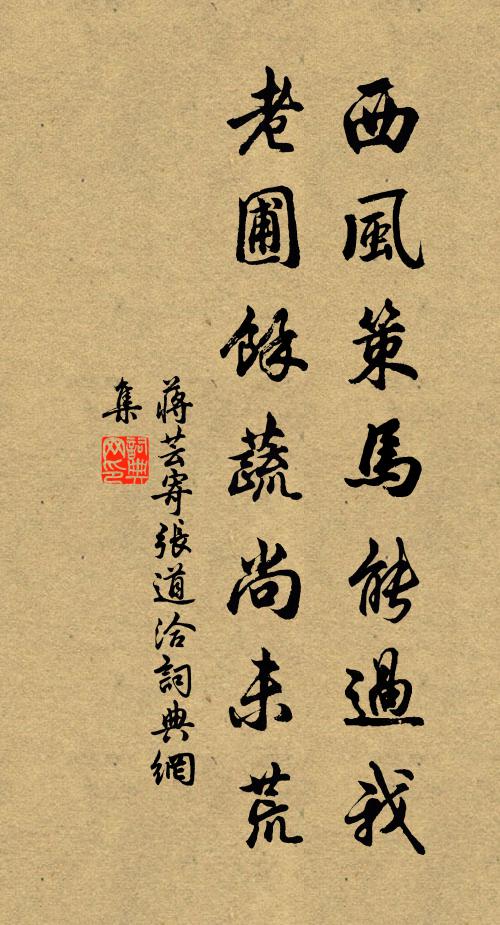 西風策馬能過我
老圃餘蔬尚未荒
蔣芸寄張道洽詞典網
集
詞典
网印